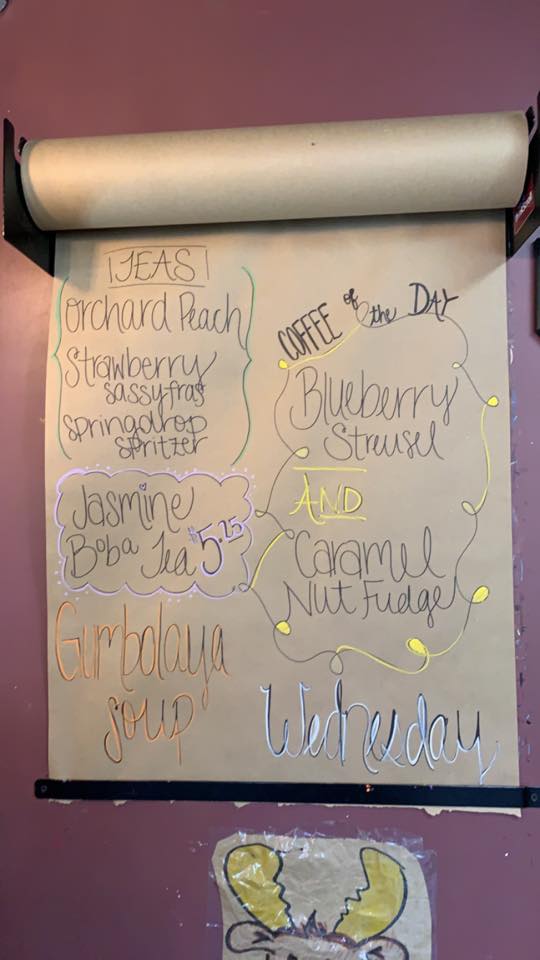 TEAS
Orchard Peach
Strawberry
sassyfras
springdrop
spritzer
Jasmine
Boba Tea $5.25
Gumbolaya
soup
COFFEE of the DAY
Blueberry
Streusel
AND
Caramel
Nut Fudge
Wednesday